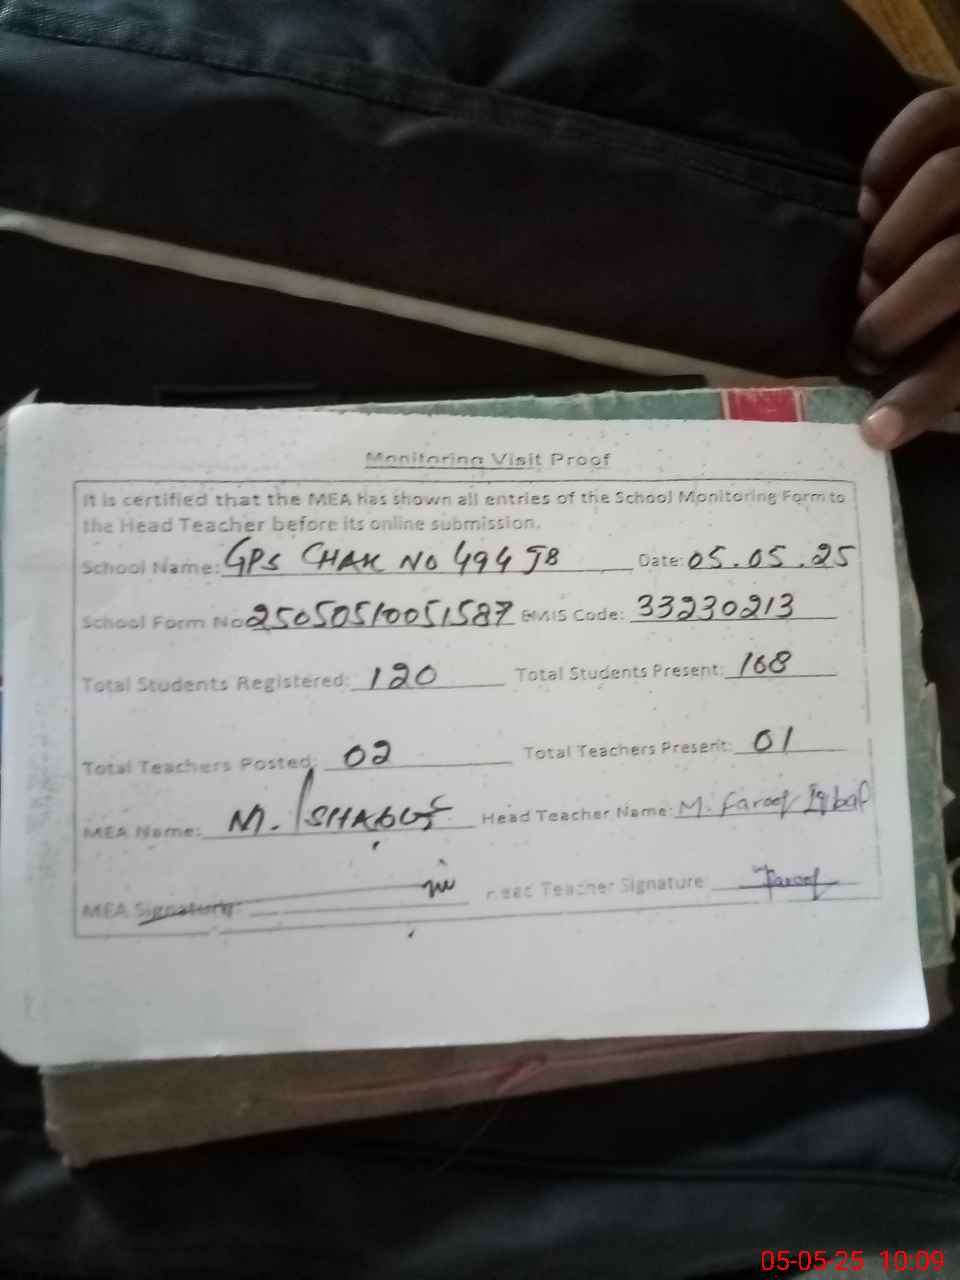 Monitoring Visit Proof
It is certified that the MEA has shown all entries of the School Monitoring Form to
the Head Teacher before its online submission.
School Name: GPS CHAK NO 494 JB Date: 05.05.25
School Form No 25050510051587 EMIS Code: 33230213
Total Students Registered: 120 Total Students Present: 168
Total Teachers Posted: 02 Total Teachers Present: 01
MEA Name: M. Head Teacher Name: M. Farooq Iqbal
MEA Signature: Head Teacher Signature: Farooq
05-05-25 10:09